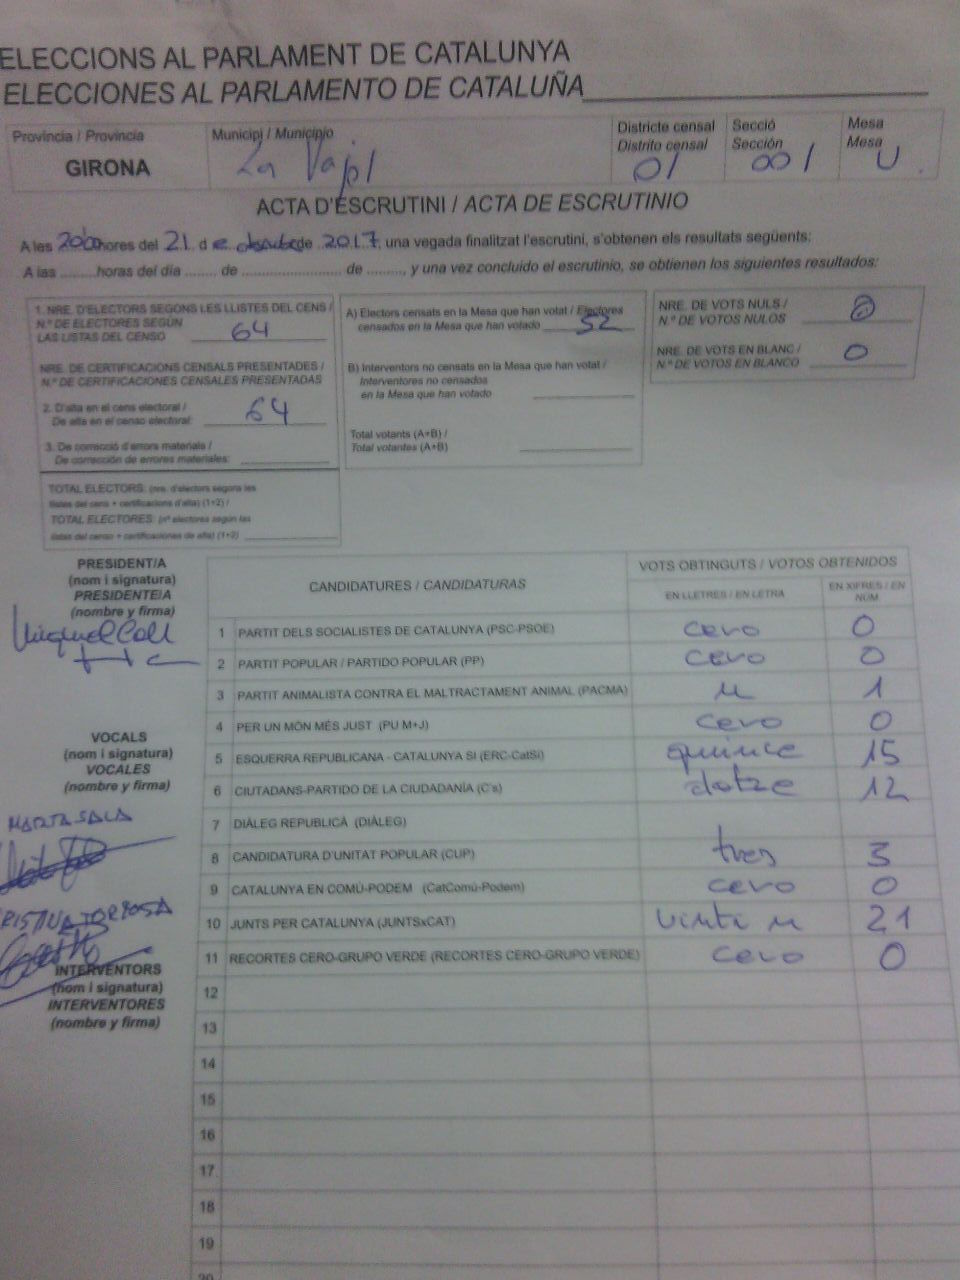 ELECCIONS AL PARLAMENT DE CATALUNYA
ELECCIONES AL PARLAMENTO DE CATALUÑA
Província / Provincia
GIRONA
Municipi / Municipio
La Vajol
Districte censal
Distrito censal
01
Secció
Sección
001
Mesa
Mesa
U
ACTA D'ESCRUTINI / ACTA DE ESCRUTINIO
A les 20:00 hores del 21 de de 2017, una vegada finalitzat l'escrutini, s'obtenen els resultats següents:
A las ......... horas del día ........ de ........................ de ........., y una vez concluido el escrutinio, se obtienen los siguientes resultados:
1. NRE. D'ELECTORS SEGONS LES LLISTES DEL CENS /
N.º DE ELECTORES SEGÚN
LAS LISTAS DEL CENSO 64
NRE. DE CERTIFICACIONS CENSALS PRESENTADES /
N.º DE CERTIFICACIONES CENSALES PRESENTADAS
2. D'alta en el cens electoral /
De alta en el censo electoral: 64
3. De correcció d'errors materials /
De corrección de errores materiales:
TOTAL ELECTORS: (nre. d'electors segons les
llistes del cens + certificacions d'alta) (1+2) /
TOTAL ELECTORES: (nº electores según las
listas del censo + certificaciones de alta) (1+2)
A) Electors censats en la Mesa que han votat / Electores
censados en la Mesa que han votado 52
B) Interventors no censats en la Mesa que han votat /
Interventores no censados
en la Mesa que han votado
Total votants (A+B) /
Total votantes (A+B)
NRE. DE VOTS NULS /
N.º DE VOTOS NULOS 0
NRE. DE VOTS EN BLANC /
N.º DE VOTOS EN BLANCO 0
PRESIDENT/A
(nom i signatura)
PRESIDENTE/A
(nombre y firma)
Miquel Coll
VOCALS
(nom i signatura)
VOCALES
(nombre y firma)
MARTA SALA
CRISTINA TORTOSA
INTERVENTORS
(nom i signatura)
INTERVENTORES
(nombre y firma)
CANDIDATURES / CANDIDATURAS
VOTS OBTINGUTS / VOTOS OBTENIDOS
EN LLETRES / EN LETRA
EN XIFRES / EN NÚM
1 PARTIT DELS SOCIALISTES DE CATALUNYA (PSC-PSOE) cero 0
2 PARTIT POPULAR / PARTIDO POPULAR (PP) cero 0
3 PARTIT ANIMALISTA CONTRA EL MALTRACTAMENT ANIMAL (PACMA) u 1
4 PER UN MÓN MÉS JUST (PU M+J) cero 0
5 ESQUERRA REPUBLICANA - CATALUNYA SÍ (ERC-CatSí) quince 15
6 CIUTADANS-PARTIDO DE LA CIUDADANÍA (C's) dotze 12
7 DIÀLEG REPUBLICÀ (DIÀLEG)
8 CANDIDATURA D'UNITAT POPULAR (CUP) tres 3
9 CATALUNYA EN COMÚ-PODEM (CatComú-Podem) cero 0
10 JUNTS PER CATALUNYA (JUNTSxCAT) vinti u 21
11 RECORTES CERO-GRUPO VERDE (RECORTES CERO-GRUPO VERDE) cero 0
12
13
14
15
16
17
18
19
20